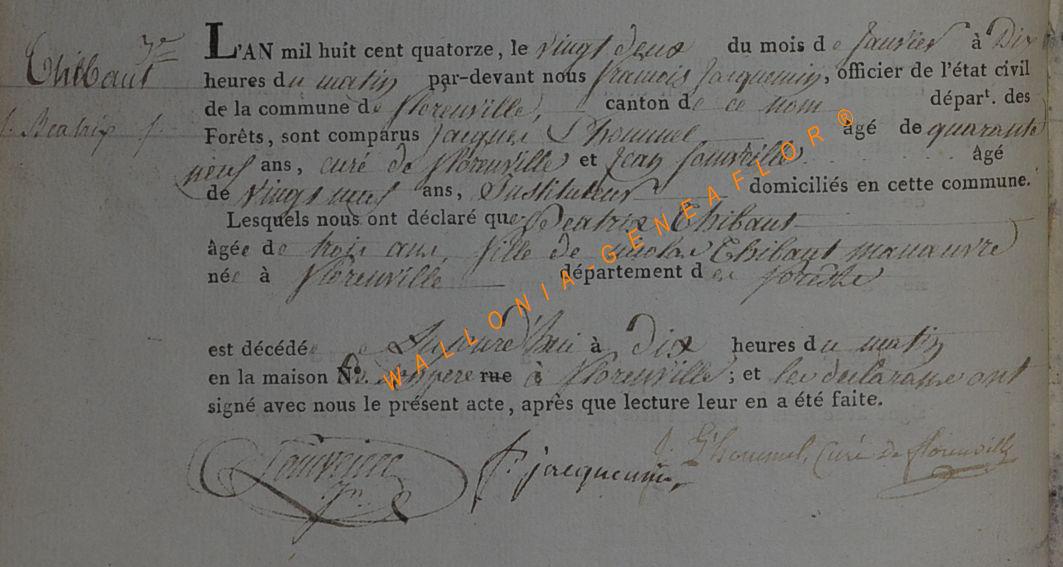 Thibaut
Beatrix
L'AN mil huit cent quatorze, le vingt deux du mois de Janvier à Dix
heures du matin par-devant nous francois Jacquemin, officier de l'état civil
de la commune de florenville, canton de ce nom départ. des
Forêts, sont comparus Jacques L'hommel âgé de quarante
neuf ans, curé de florenville et Jean âgé
de vingt neuf ans, Instituteur domiciliés en cette commune.
Lesquels nous ont déclaré que Beatrix Thibaut
âgée de trois ans, fille de nicolas Thibaut manœuvre
née à florenville département des forêts
est décédée à Dix heures du matin
en la maison N.º père rue à florenville ; et les declarans ont
signé avec nous le présent acte, après que lecture leur en a été faite.
f. jacquemin
J. L'hommel, Curé de florenville
WALLONIA-GENEAFLOR®